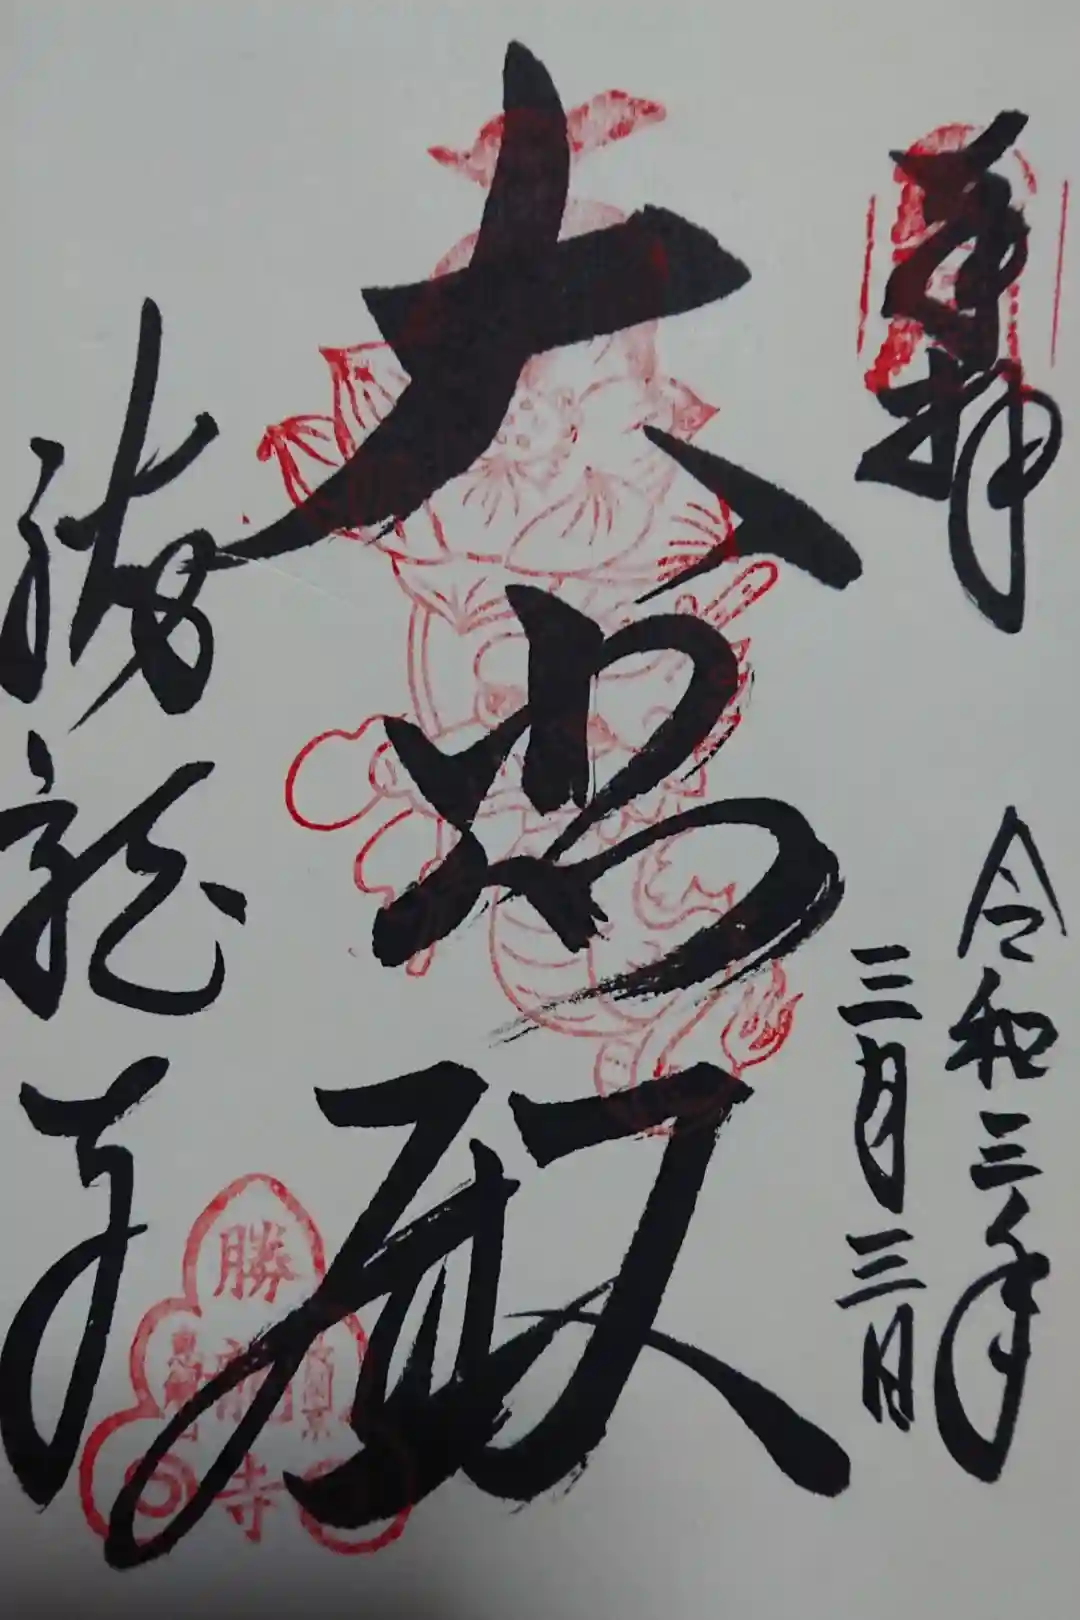 奉拝
令和三年
三月三日
大悲殿
勝龍寺
勝龍寺